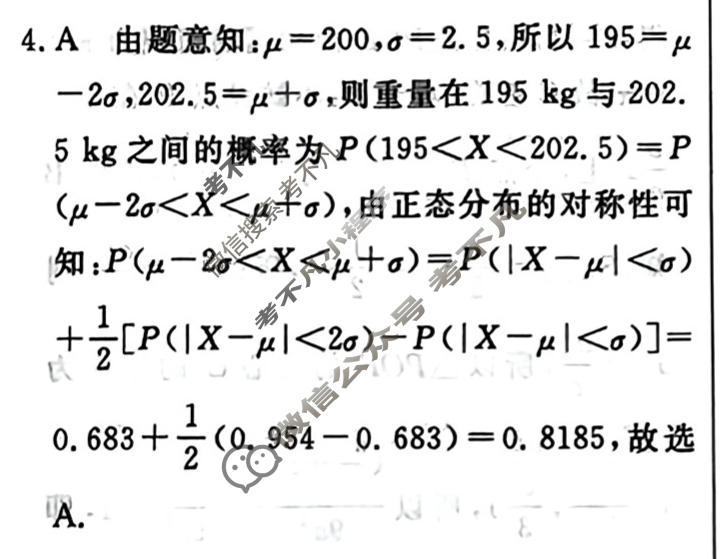 4. A 由题意知:μ=200,σ=2.5,所以 195=μ
-2σ,202.5=μ+σ,则重量在 195 kg 与 202.
5 kg 之间的概率为 P(195<X<202.5)=P
(μ-2σ<X<μ+σ),由正态分布的对称性可
知:P(μ-2σ<X<μ+σ)=P(|X-μ|<σ)
+\frac{1}{2}[P(|X-μ|<2σ)-P(|X-μ|<σ)]=
0.683+\frac{1}{2}(0.954-0.683)=0.8185,故选
A.
微信搜索考不凡
考不凡小程序
微信公众号 考不凡